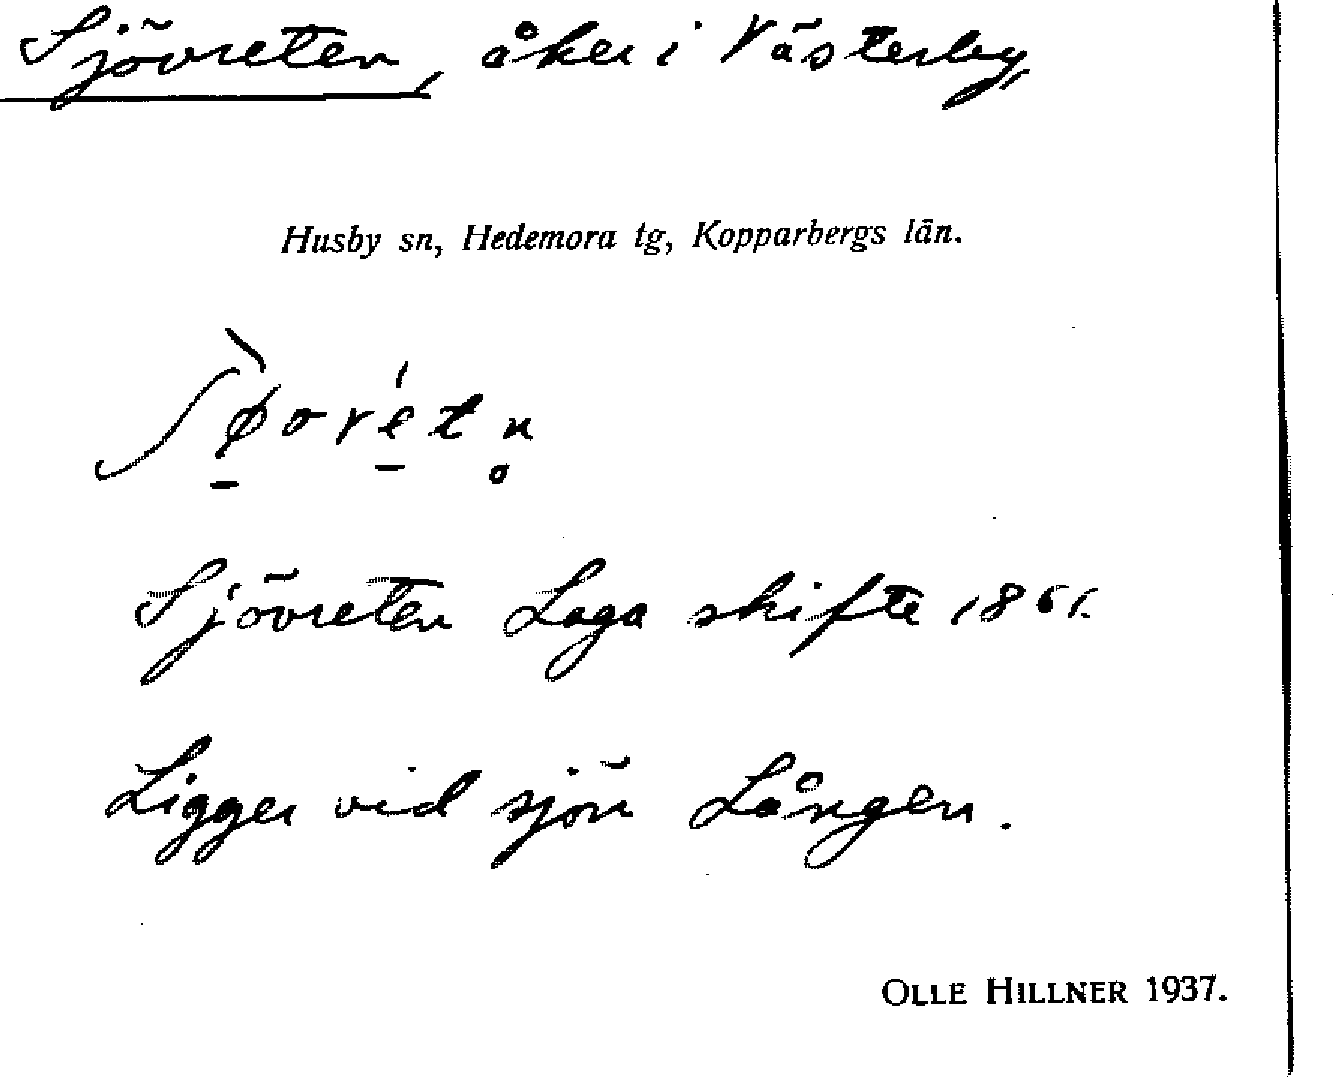 Sjövreten, åker i Västerby,
Husby sn, Hedemora tg, Kopparbergs län.
Sjövreten Laga skifte 1861.
Ligger vid sjön Lången.
OLLE HILLNER 1937.